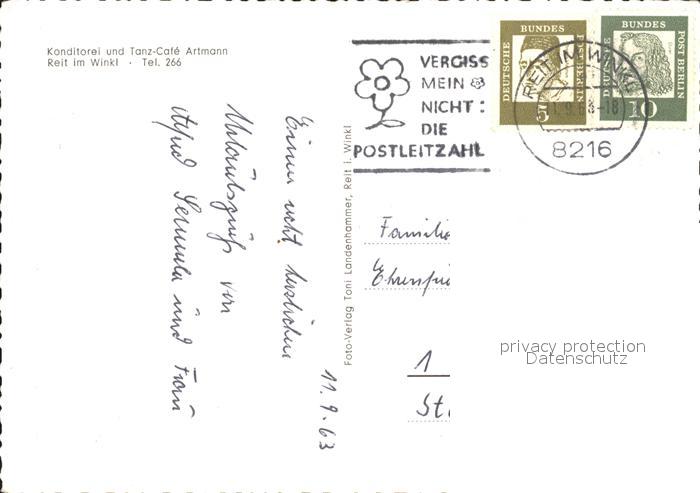 Konditorei und Tanz-Café Artmann
Reit im Winkl · Tel. 266
VERGISS
MEIN
NICHT:
DIE
POSTLEITZAHL
DEUTSCHE BUNDES POST BERLIN
5
DEUTSCHE BUNDES POST BERLIN
10
REIT IM WINKL
.9.63-18
8216
Einen recht herzlichen
Urlaubsgruß von
und Frau
11.9.63
Foto-Verlag Toni Landenhammer, Reit i. Winkl
Familie
Ehrenfrie
1
St
privacy protection
Datenschutz